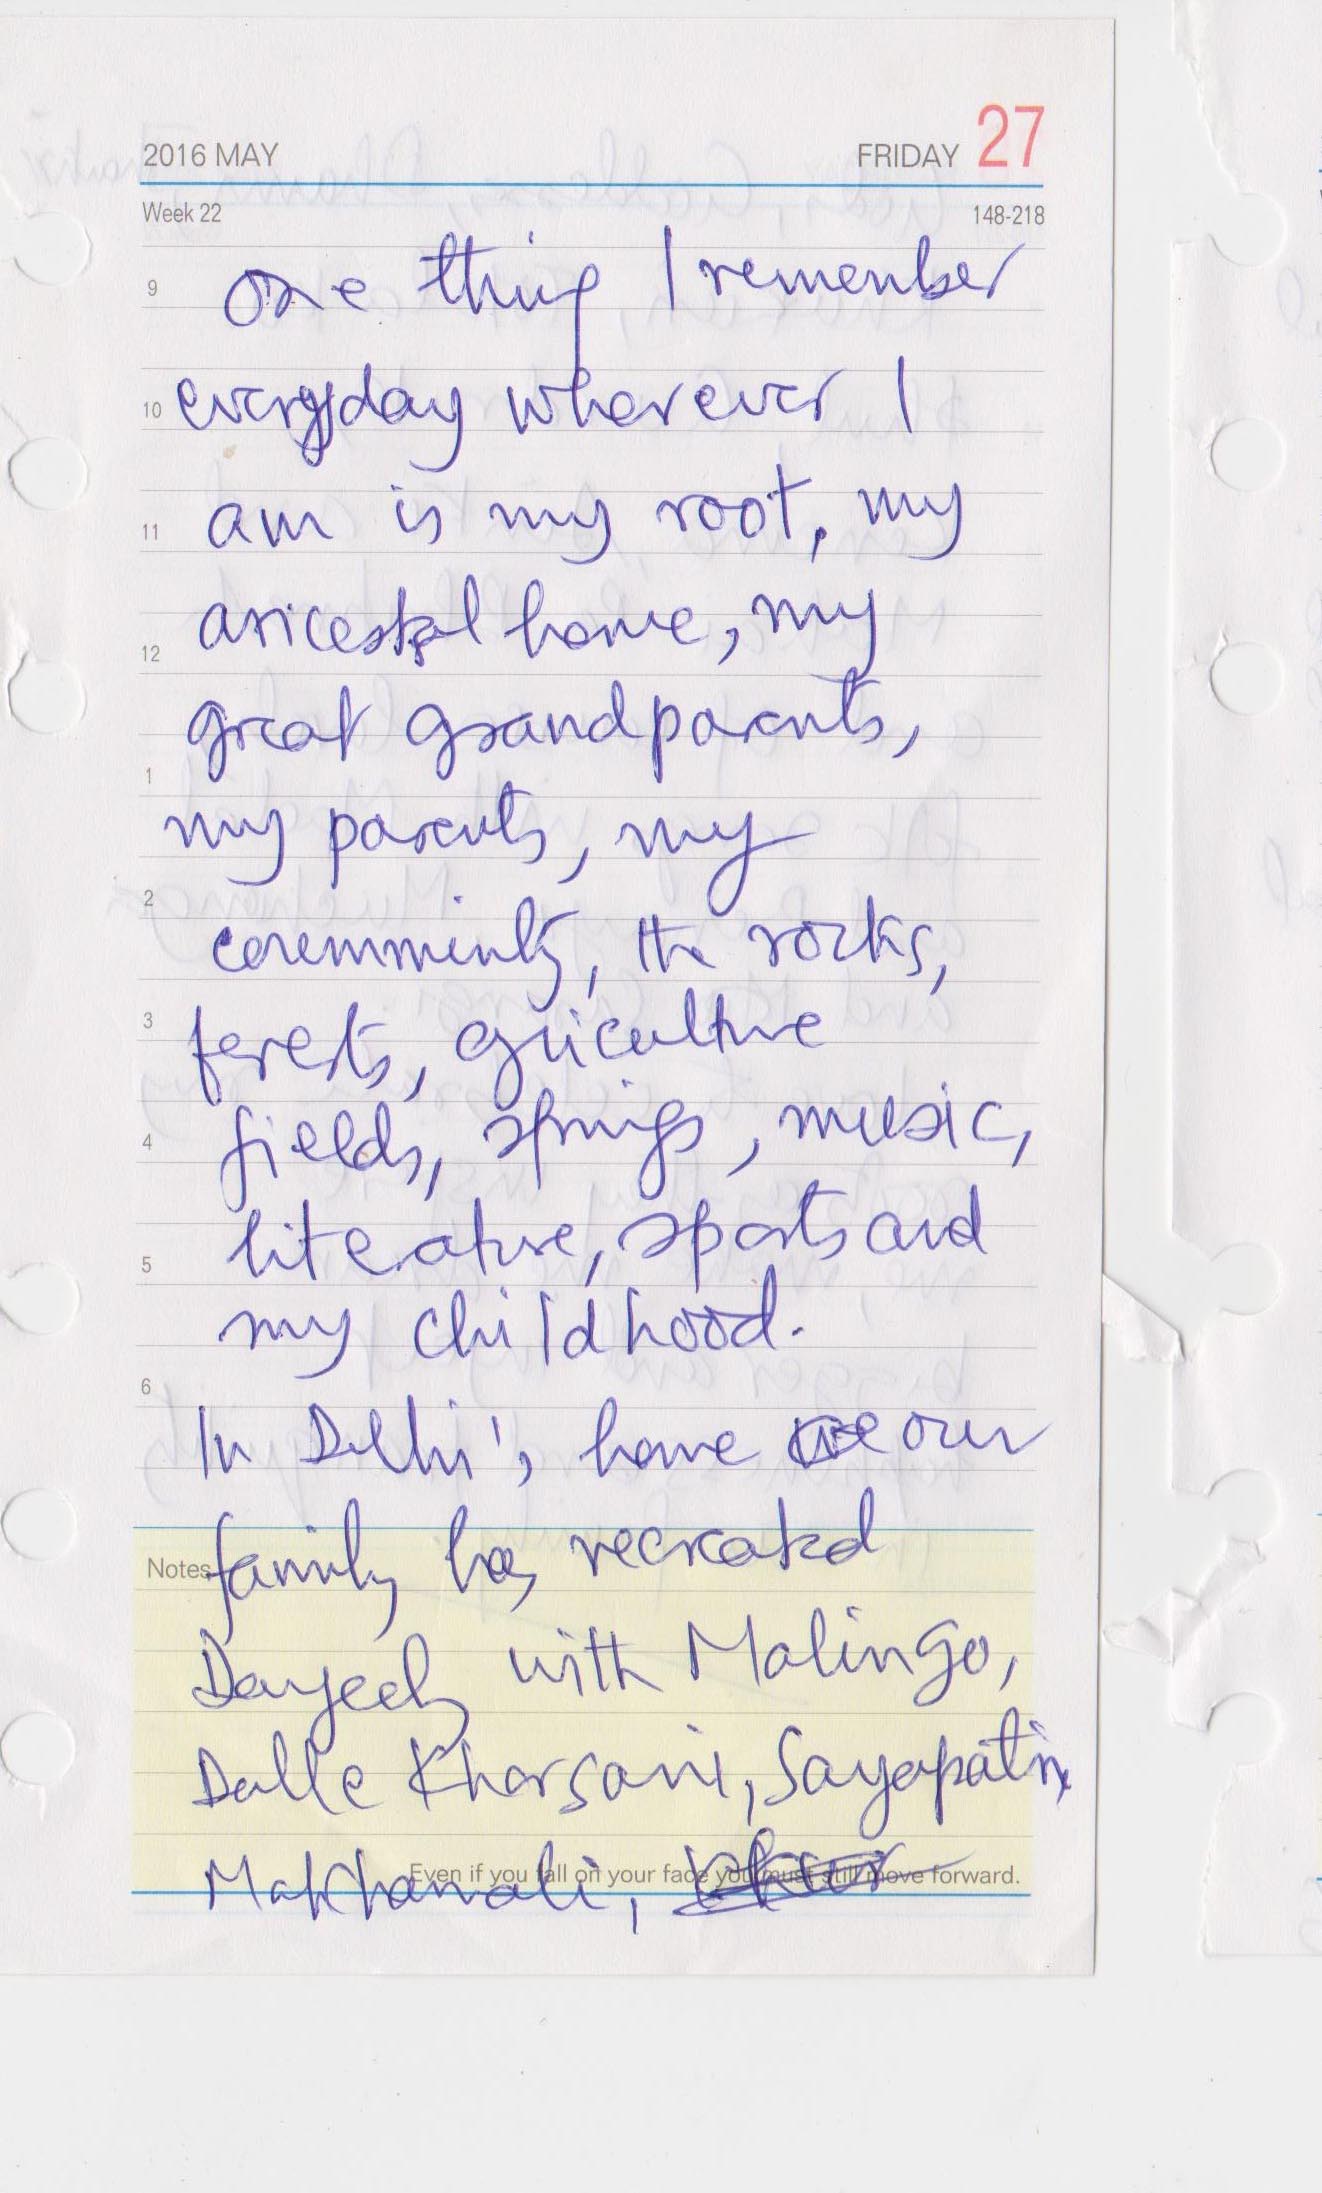 2016 MAY FRIDAY 27
Week 22 148-218
9 One thing I remember
10 everyday wherever I
11 am is my root, my
12 ancestral home, my
great grandparents,
1
my parents, my
2
community, the rocks,
3 forests, agriculture
4 fields, springs, music,
5 literature, sports and
my childhood.
6
In Delhi', home our
Notes family has recreated
with Malingo,
Dalle Khorsani, Sayapatri,
Makhamali,
Even if you fall on your face you must still move forward.